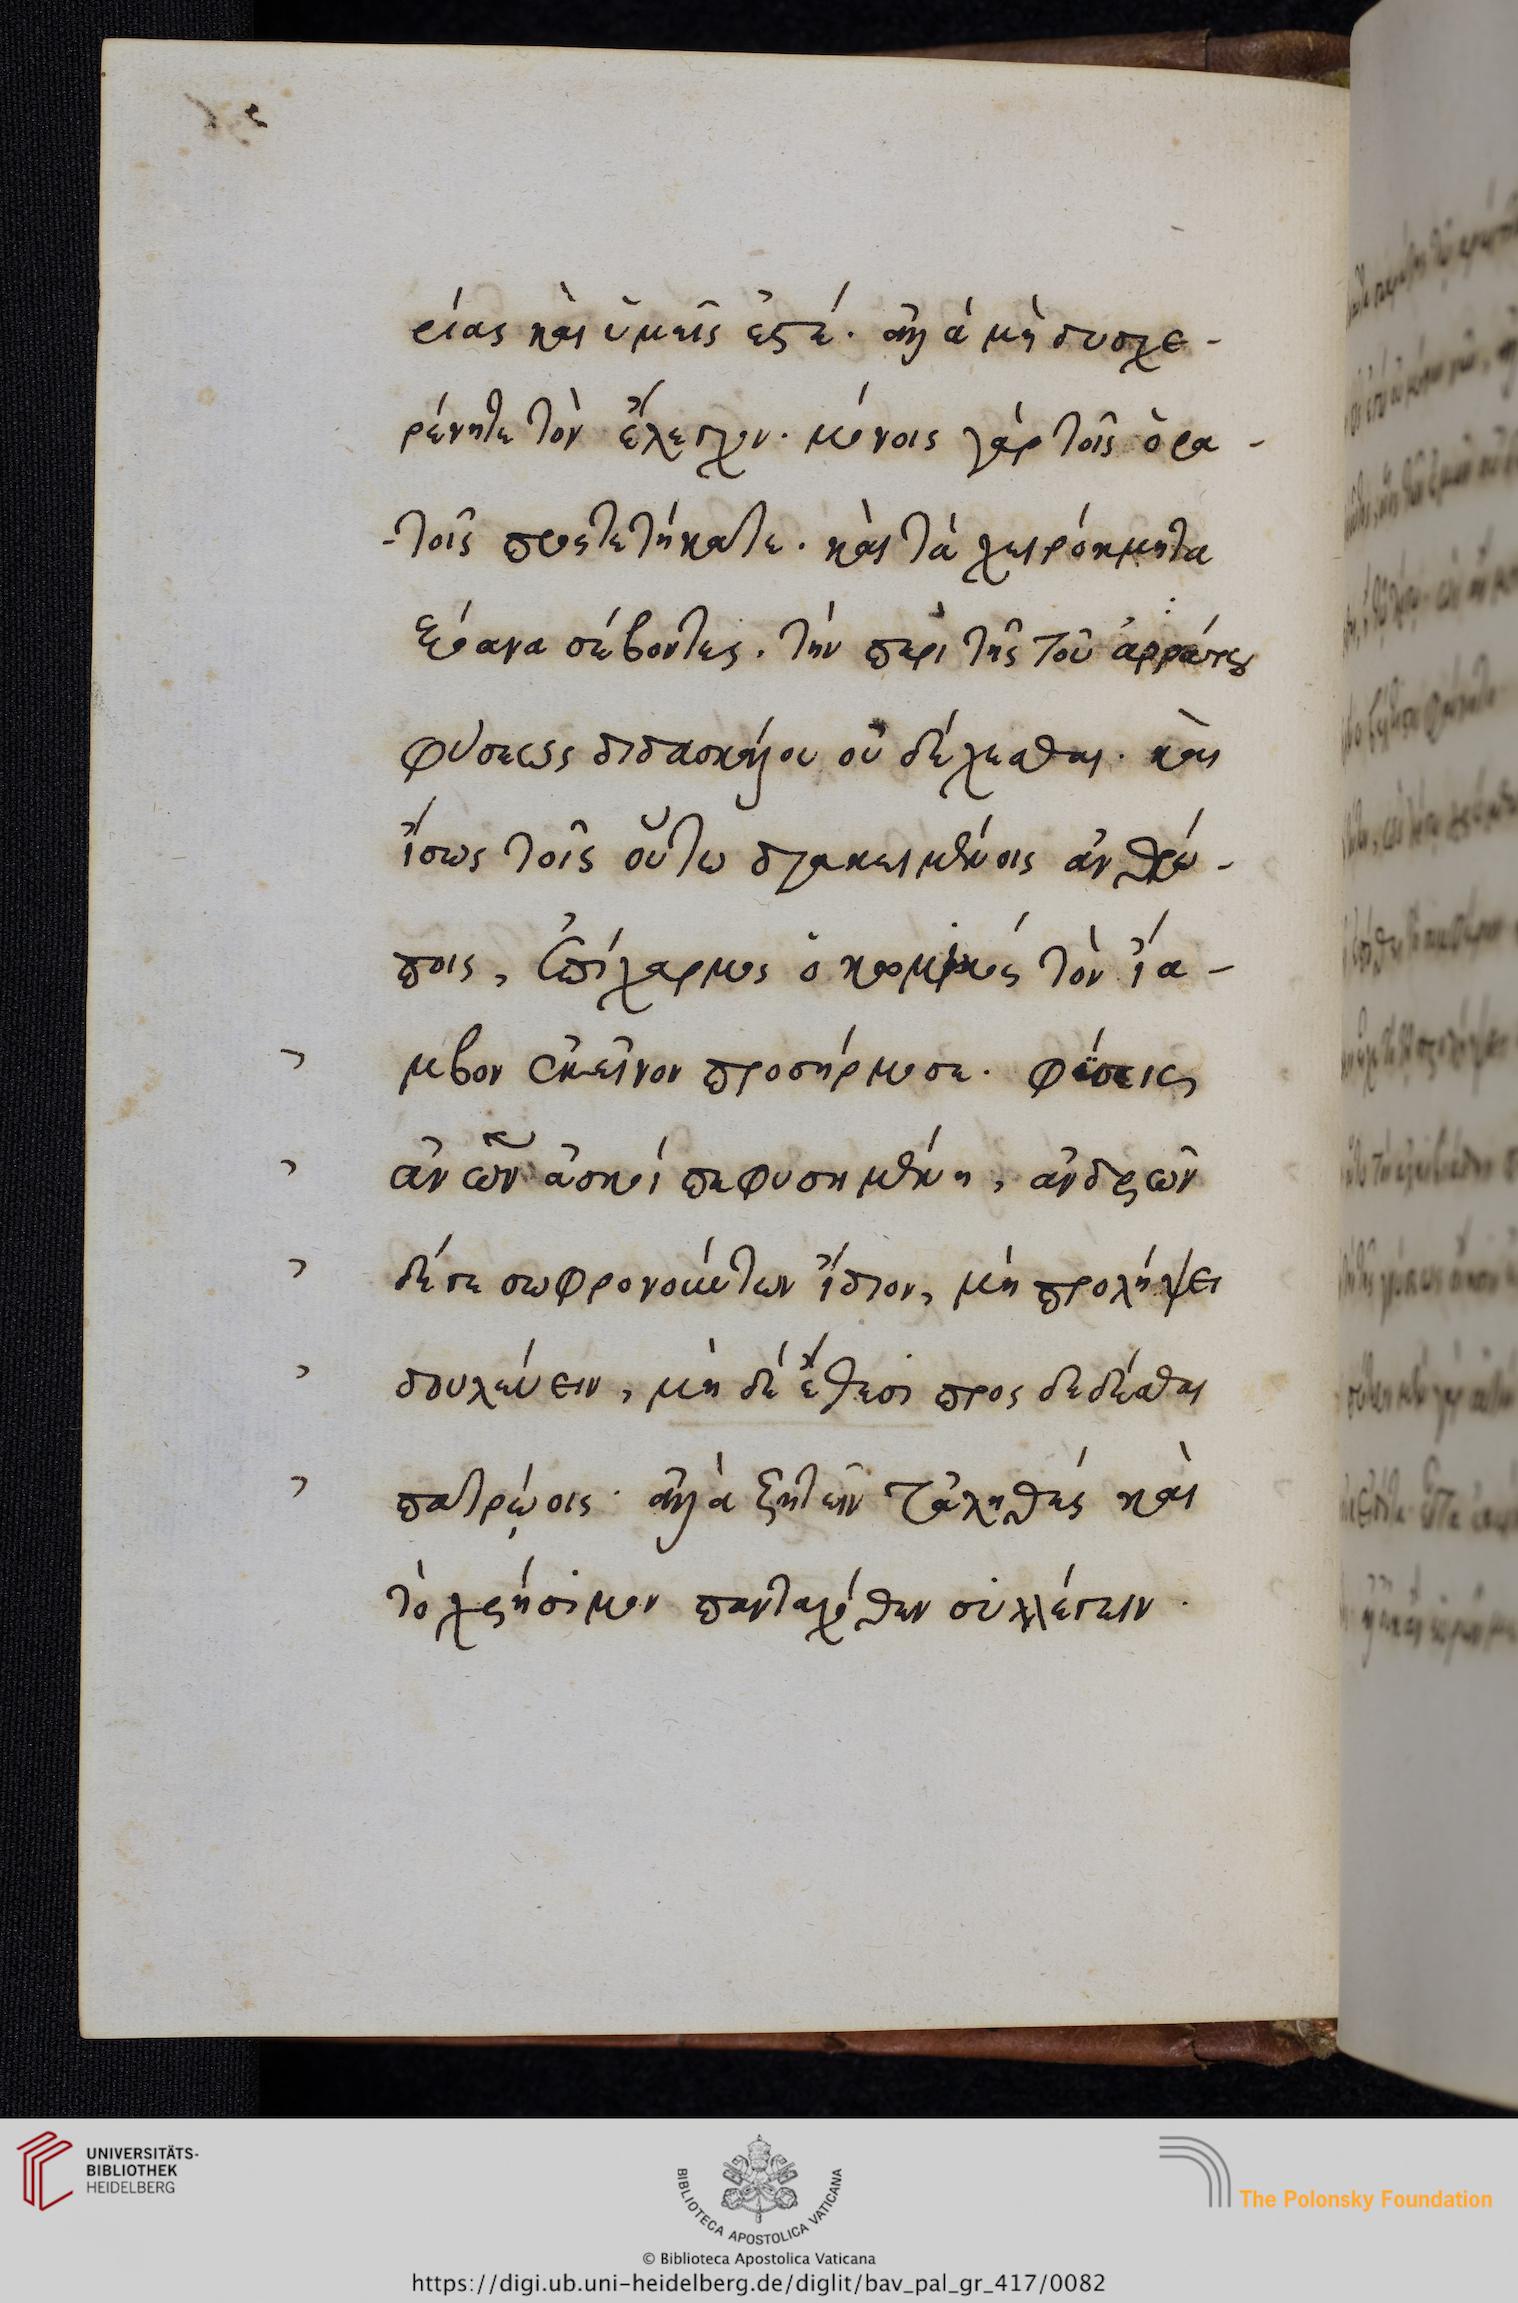 ρίας καὶ ὑμεῖς ἐστέ. ἀλλὰ μὴ δυσχε-
ραίνητε τὸν ἔλεγχον. μόνοις γὰρ τοῖς ὁρα-
-τοῖς προστετήκατε. καὶ τὰ χειρόκμητα
ξόανα σέβοντες. τὴν περὶ τῆς τοῦ ἀοράτου
φύσεως διδασκαλίαν οὐ δέχεσθαι. καὶ
ἴσως τοῖς οὕτω διακειμένοις ἀνθρώ-
ποις, Ἐπίχαρμος ὁ κωμικός τὸν ἴα-
μβον ἐκεῖνον προσήρμοσε. φύσεις
ἀνθρώπων ἀσκοὶ πεφυσημένοι, ἀνδρῶν
δέ γε σωφρονούντων ἴδιον, μὴ προλήψει
δουλεύειν, μὴ δέ ἔθεσι προς δεδέσθαι
πατρῴοις. ἀλλὰ ζητεῖν τἀληθές καὶ
τὸ χρήσιμον πανταχόθεν συλλέγειν.
UNIVERSITÄTS-
BIBLIOTHEK
HEIDELBERG
BIBLIOTECA APOSTOLICA VATICANA
The Polonsky Foundation
© Biblioteca Apostolica Vaticana
https://digi.ub.uni-heidelberg.de/diglit/bav_pal_gr_417/0082